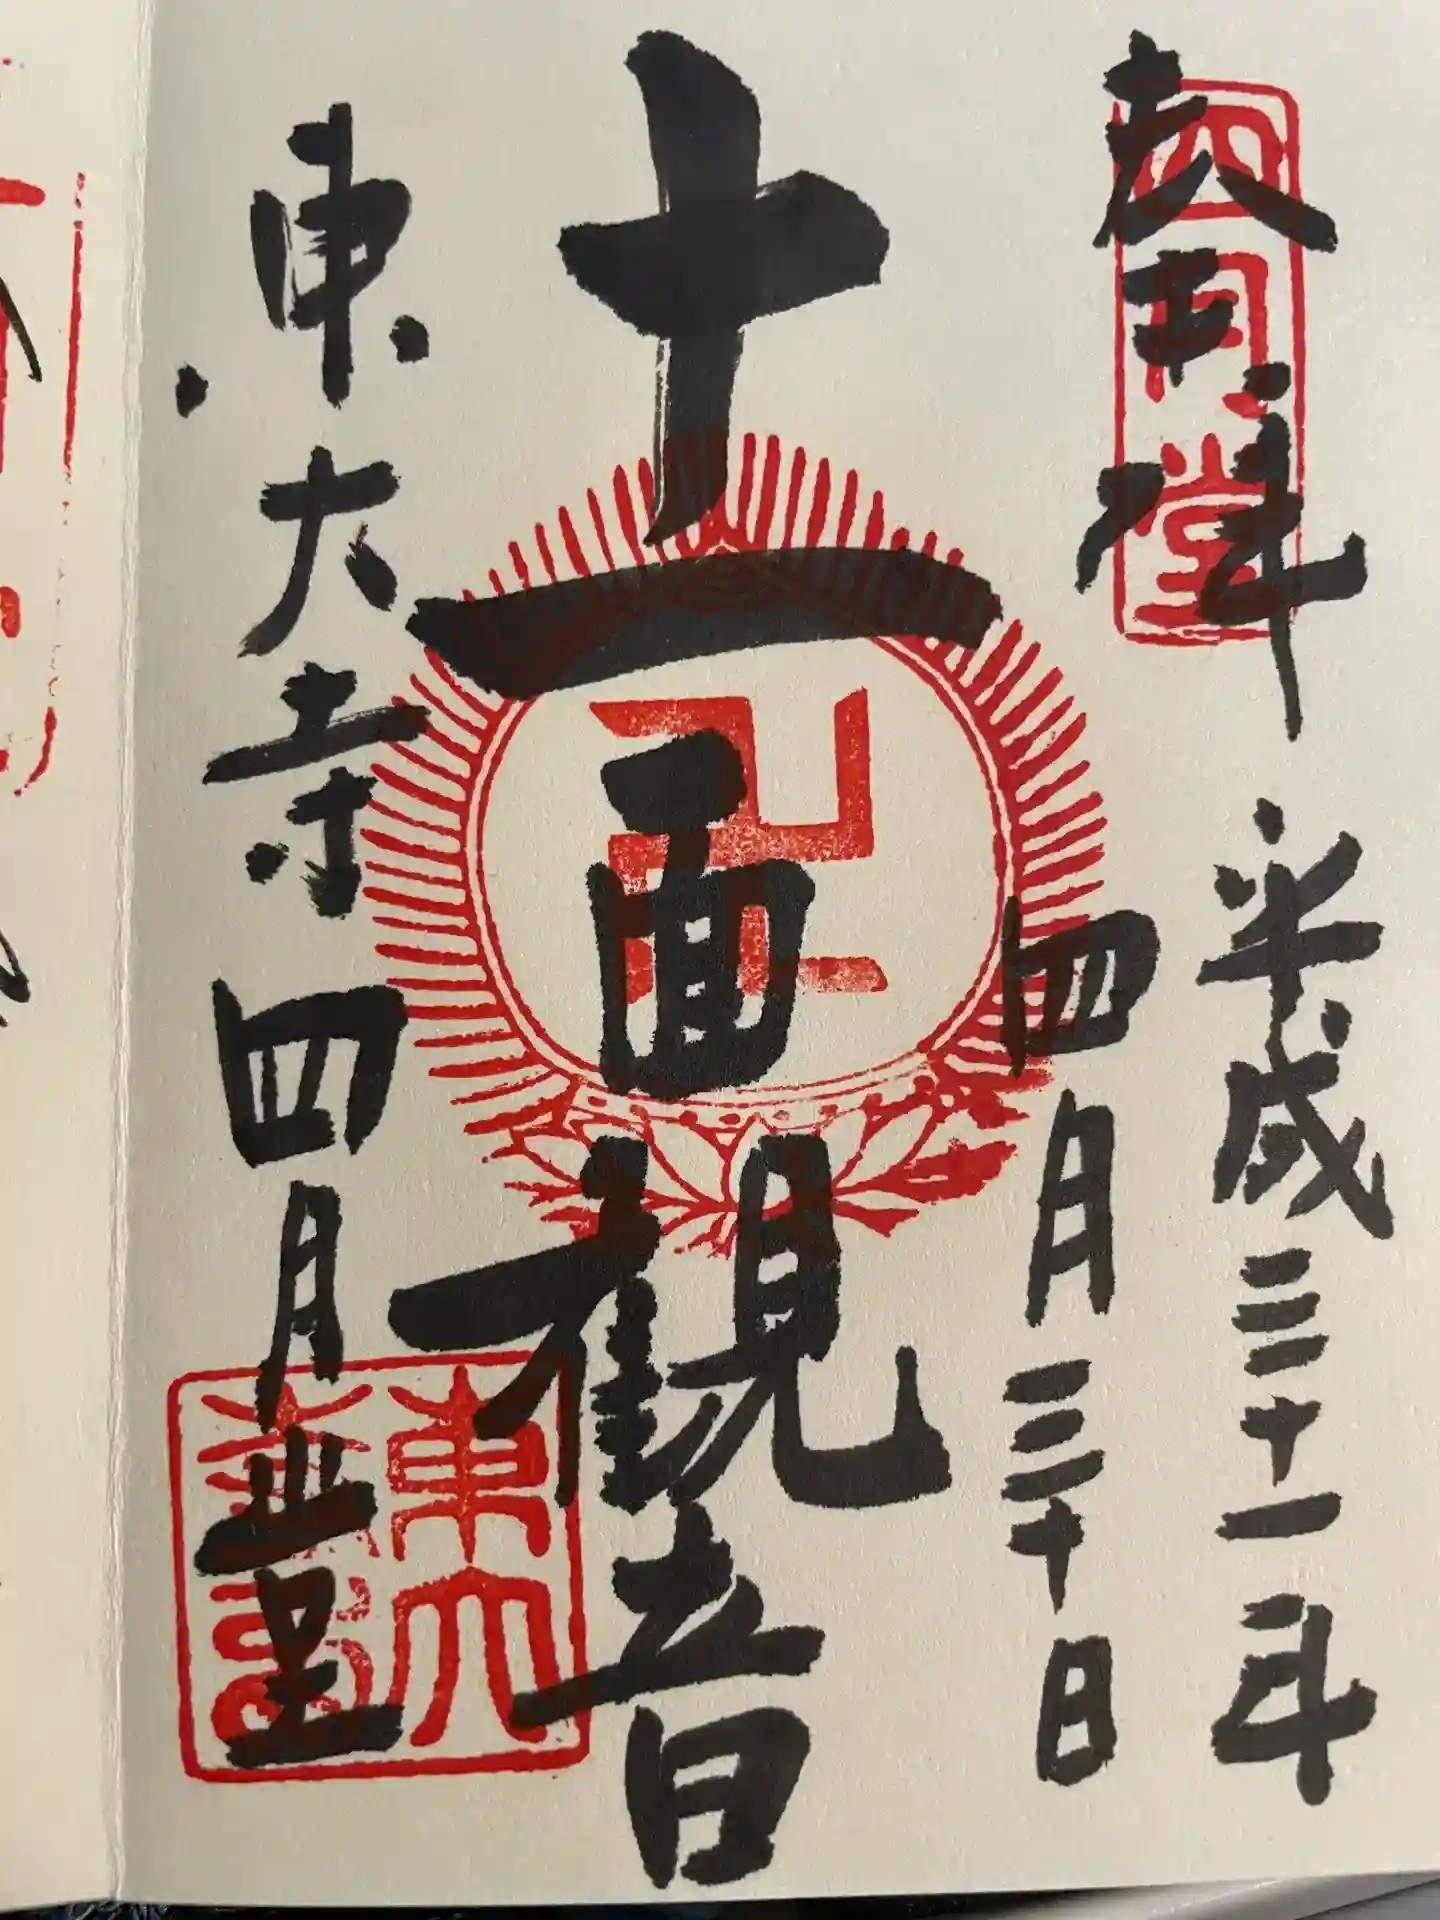 奉拝
平成三十一年
四月三十日
十一面観音
東大寺四月堂
四月堂
東大